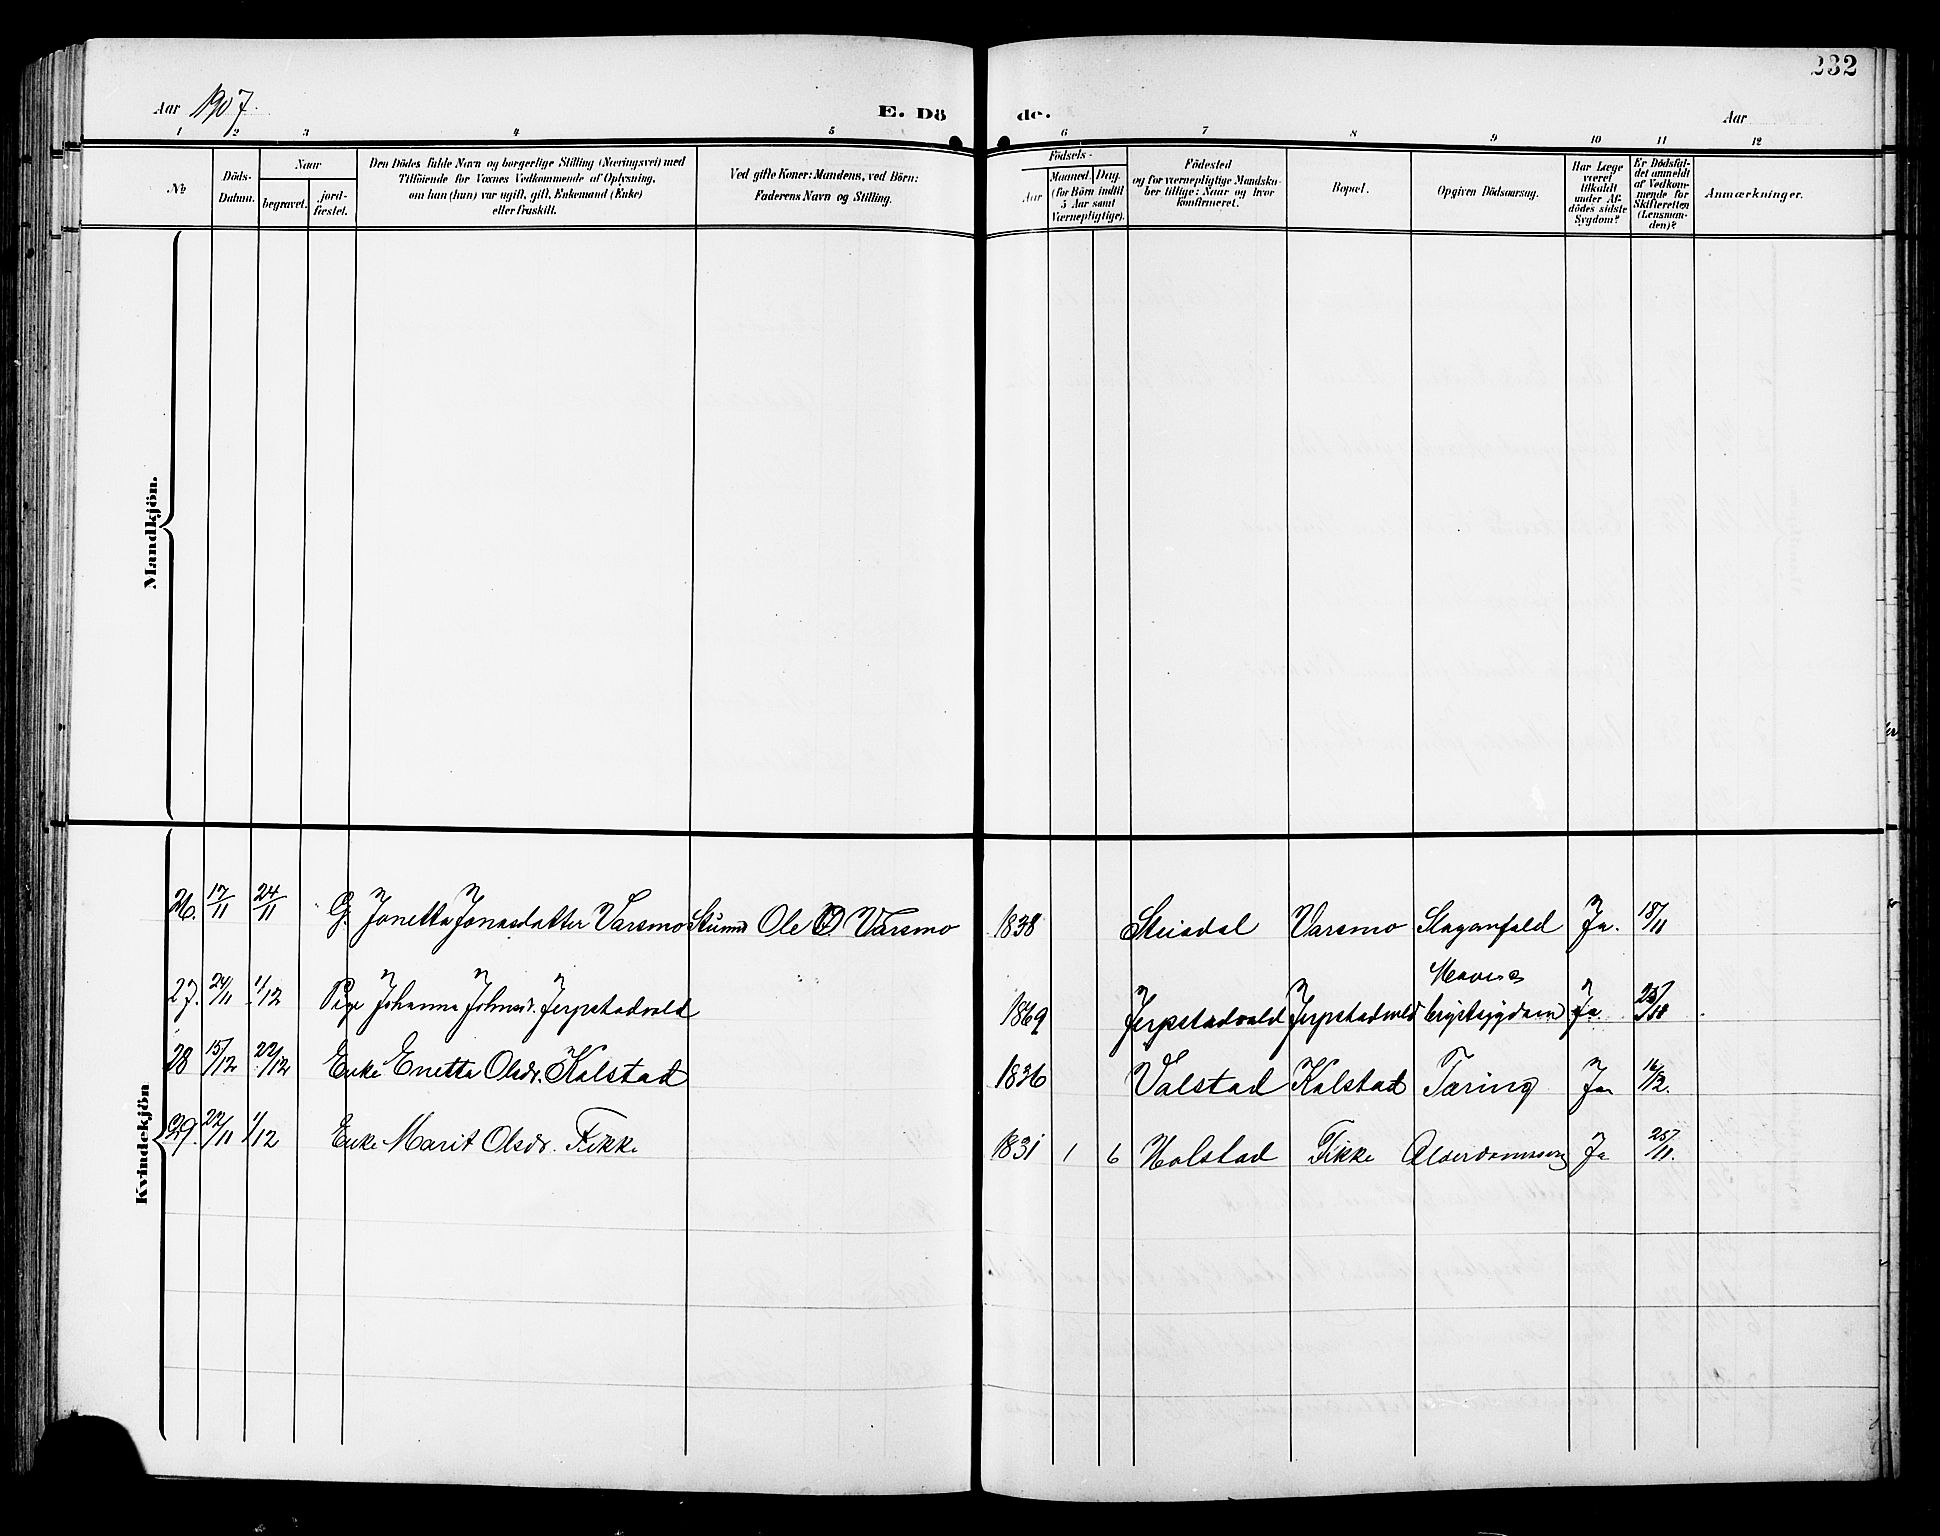 232
Aar 1907.
E. Dö
de.
Aar
1 2 3 4 5 6 7 8 9 10 11 12
No
Döds-
Datum.
Naar
begravet.
jord-
fæstet.
Den Dödes fulde Navn og borgerlige Stilling (Næringsvei) med
Tilföiende for Voxnes Vedkommende af Oplysning,
om han (hun) var ugift, gift, Enkemand (Enke)
eller fraskilt.
Ved gifte Koner: Mandens, ved Börn:
Faderens Navn og Stilling.
Födsels-
Aar
Maaned.
Dag.
(for Börn indtil
5 Aar samt
Værnepligtige).
Födested
og for værnepligtige Mandskaber
tillige: Naar og hvor
konfirmeret.
Bopæl.
Opgiven Dödsaarsag.
Har Læge
været
tilkaldt
under Af-
dödes sidste
Sygdom?
Er Dödsfal-
det anmeldt
af Vedkom-
mende for
Skifteretten
(Lensman-
den)?
Anmærkninger.
Mandkjön.
Kvindekjön
26. 17/11 24/11 G. Jonetta Jonasdatter Varsmo Ole O. Varsmo 1838 Steisdal Varsmo Ja. 18/11
27. 24/11 1/12 Pige Johanna Johnsd. Jerpstadvald 1869 Jerpstadvald Jerpstadvald brystsygdom Ja. 25/11
28 15/12 22/12 Enke Enetta Olsdr. Kolstad 1836 Valstad Kolstad Tæring Ja 16/12.
29. 22/11 1/12 Enke Marit Olsdr. Fikke 1831 1 6 Holstad Fikke Ja 25/11.